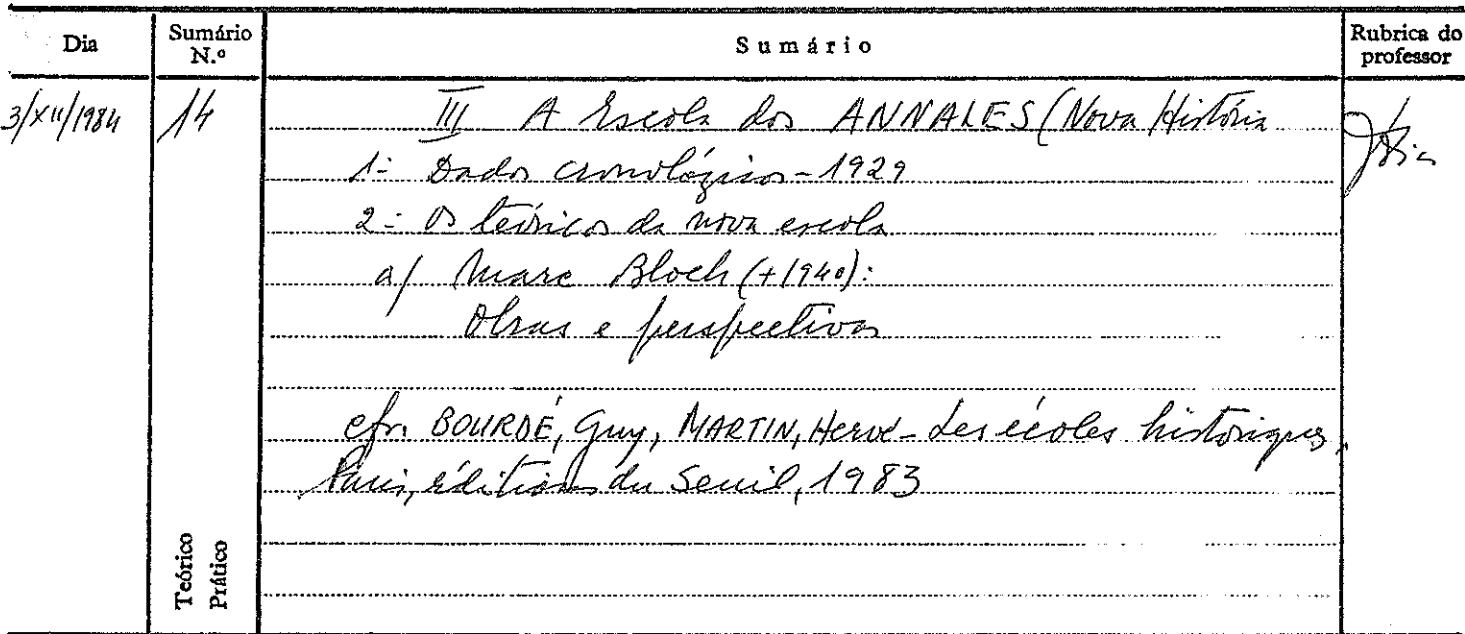 Dia
Sumário N.º
Sumário
Rubrica do professor
3/XII/1984
14
III A Escola dos ANNALES (Nova História
1- Dados cronológicos - 1929
2- Os teóricos da nova escola
a/ Marc Bloch (+1940):
Obras e perspectivas
cfr. BOURDÉ, Guy, MARTIN, Hervé - Les écoles historiques,
Paris, éditions du Seuil, 1983
Teórico
Prático